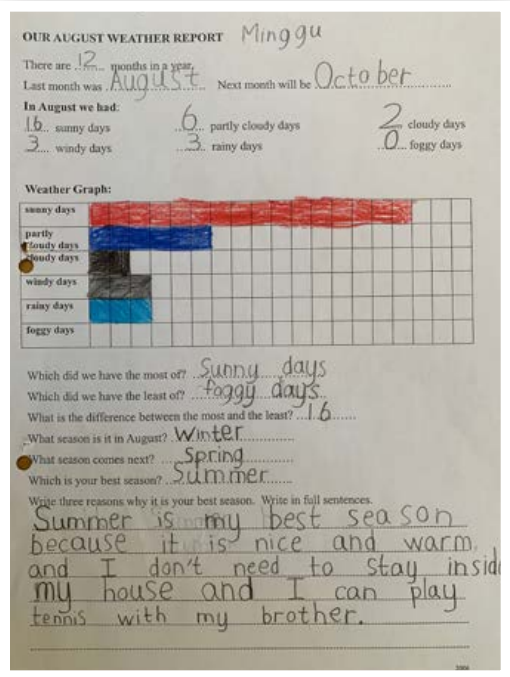 OUR AUGUST WEATHER REPORT Minggu
There are 12 months in a year.
Last month was August Next month will be October
In August we had:
16 sunny days 6 partly cloudy days 2 cloudy days
3 windy days 3 rainy days 0 foggy days
Weather Graph:
sunny days
partly
cloudy days
cloudy days
windy days
rainy days
foggy days
Which did we have the most of? Sunny days
Which did we have the least of? foggy days
What is the difference between the most and the least? 16
What season is it in August? Winter
What season comes next? Spring
Which is your best season? Summer
Write three reasons why it is your best season. Write in full sentences.
Summer is my best season
because it is nice and warm
and I don't need to stay inside
my house and I can play
tennis with my brother.